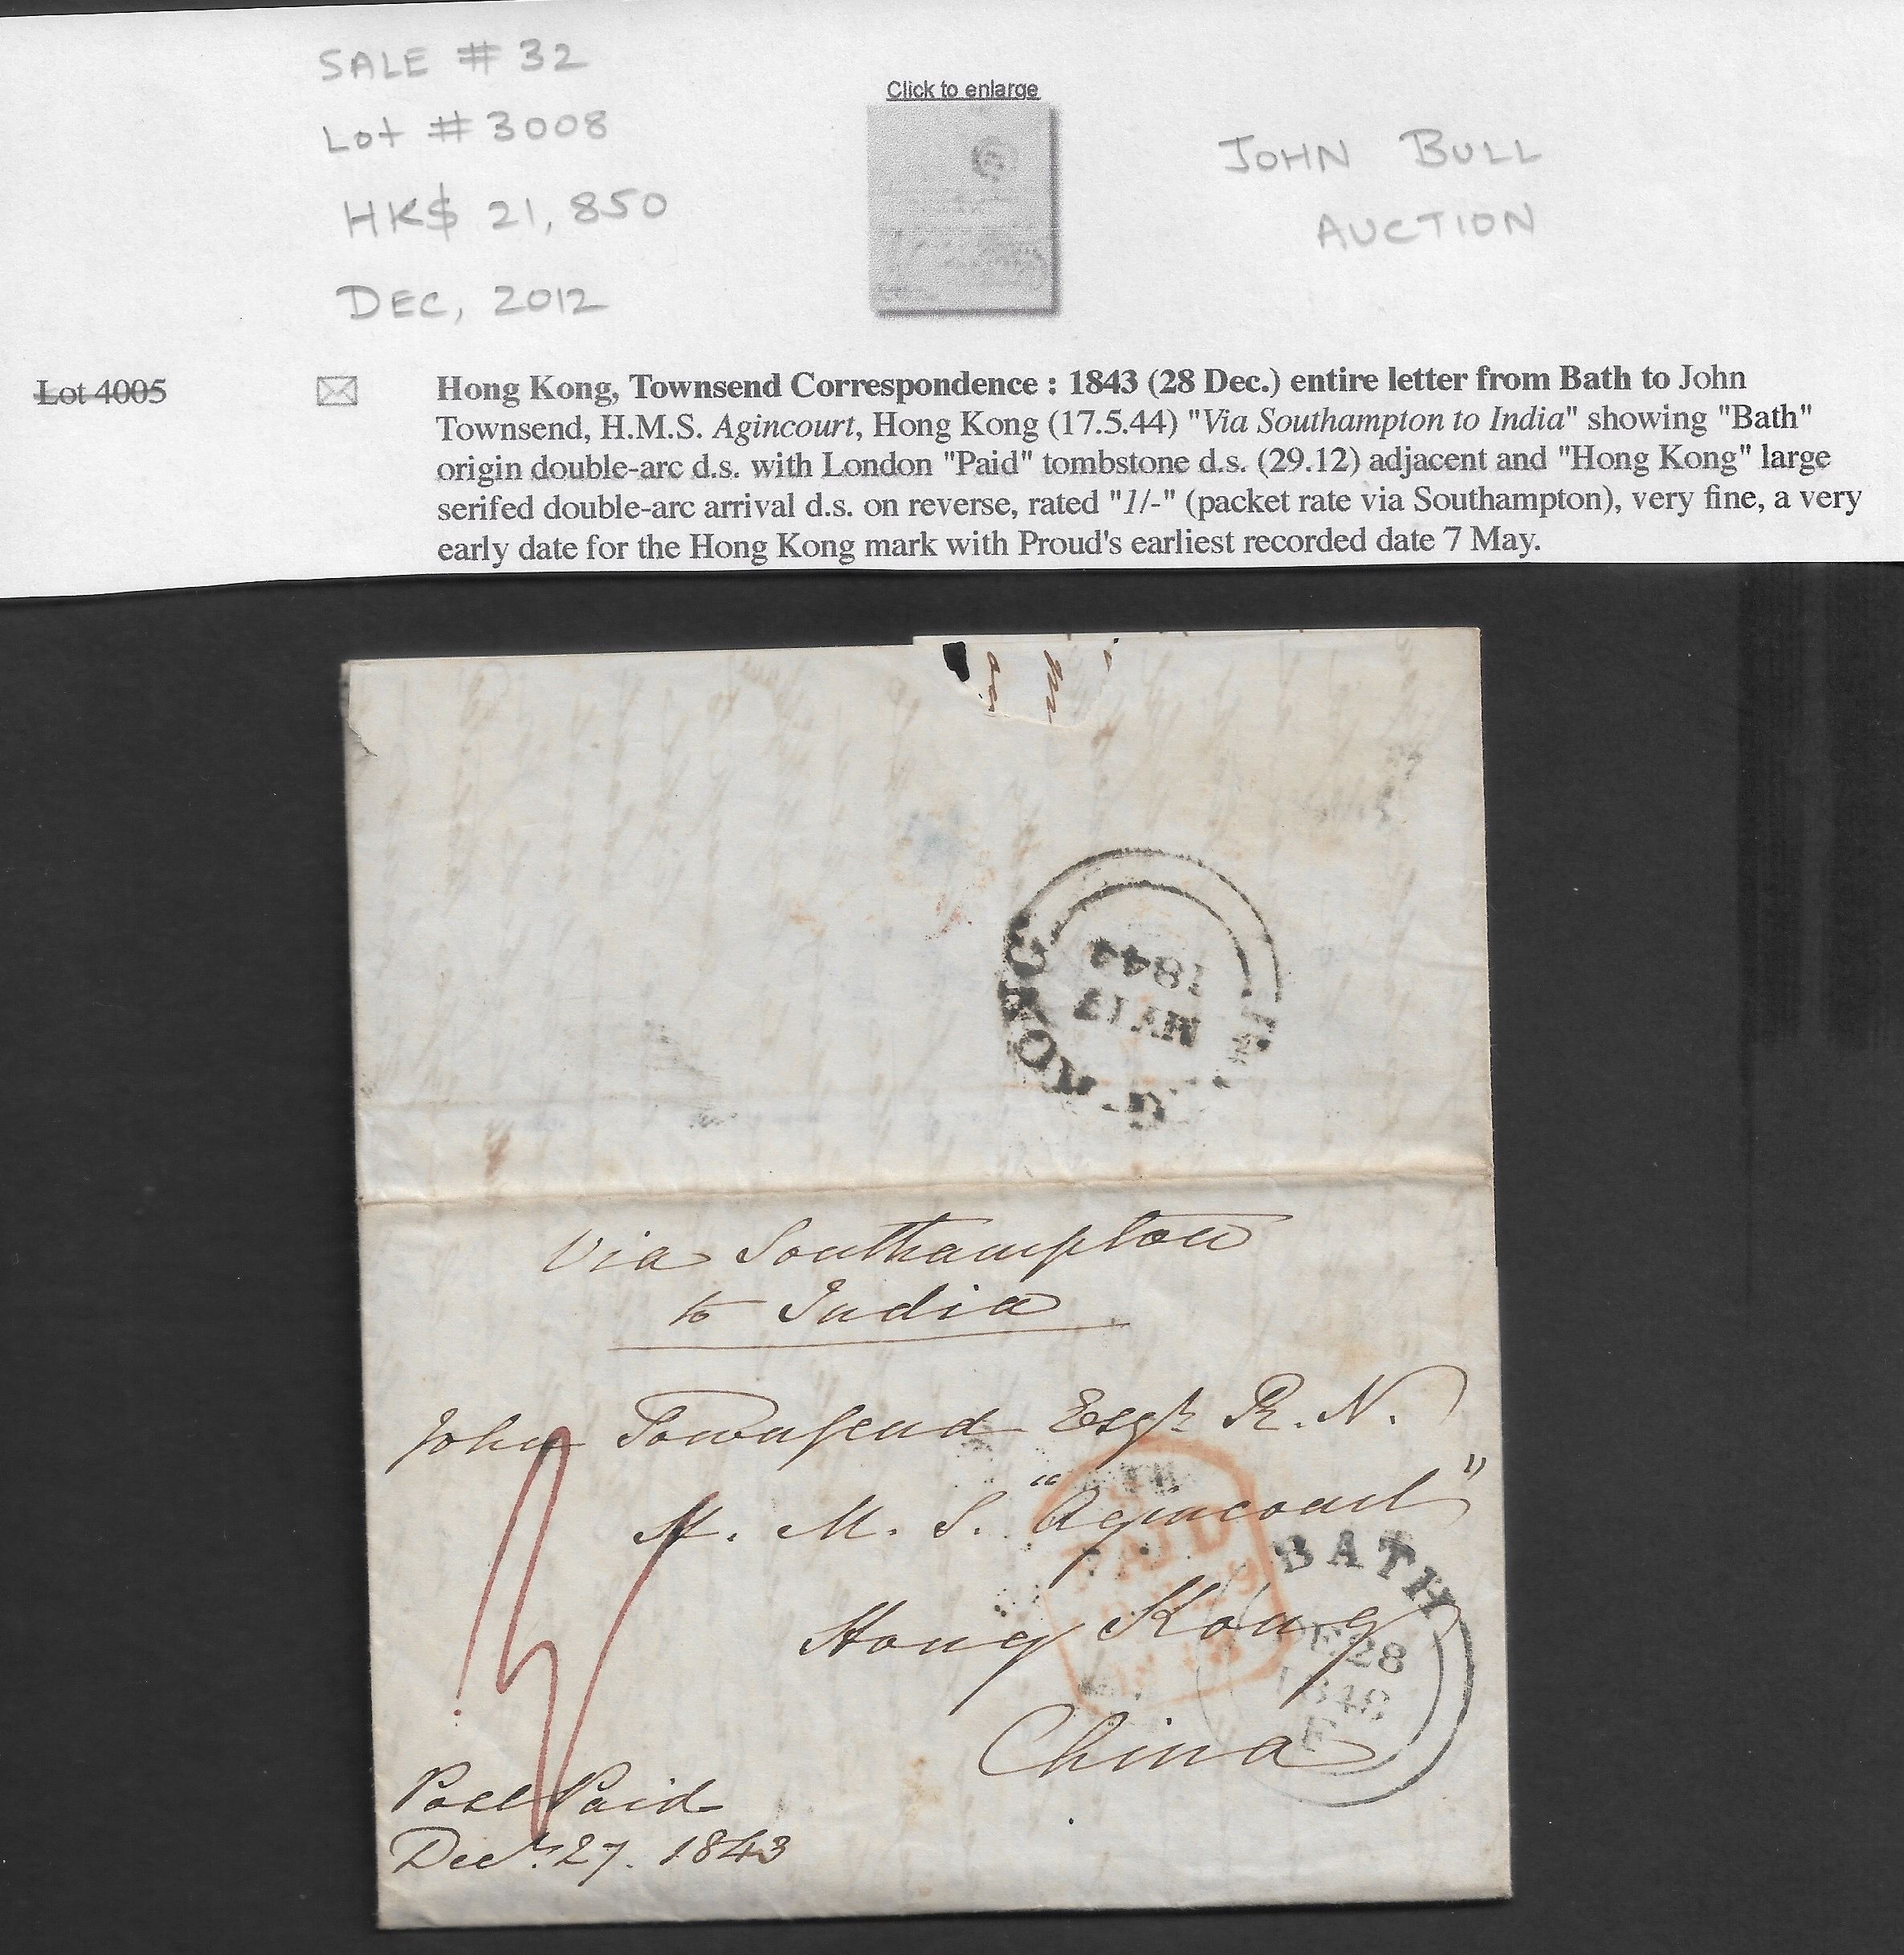 SALE # 32
Lot # 3008
HK$ 21,850
DEC, 2012
Click to enlarge
JOHN BULL
AUCTION
Lot 4005
Hong Kong, Townsend Correspondence : 1843 (28 Dec.) entire letter from Bath to John
Townsend, H.M.S. Agincourt, Hong Kong (17.5.44) "Via Southampton to India" showing "Bath"
origin double-arc d.s. with London "Paid" tombstone d.s. (29.12) adjacent and "Hong Kong" large
serifed double-arc arrival d.s. on reverse, rated "1/-" (packet rate via Southampton), very fine, a very
early date for the Hong Kong mark with Proud's earliest recorded date 7 May.
KONG
MY 17
1844
Via Southampton
to India
John Townsend Esqr R. N.
H. M. S. "Agincourt"
Hong Kong
China
PAID
BATH
DE 28
1843
F
1/
Post Paid
Decr. 27. 1843